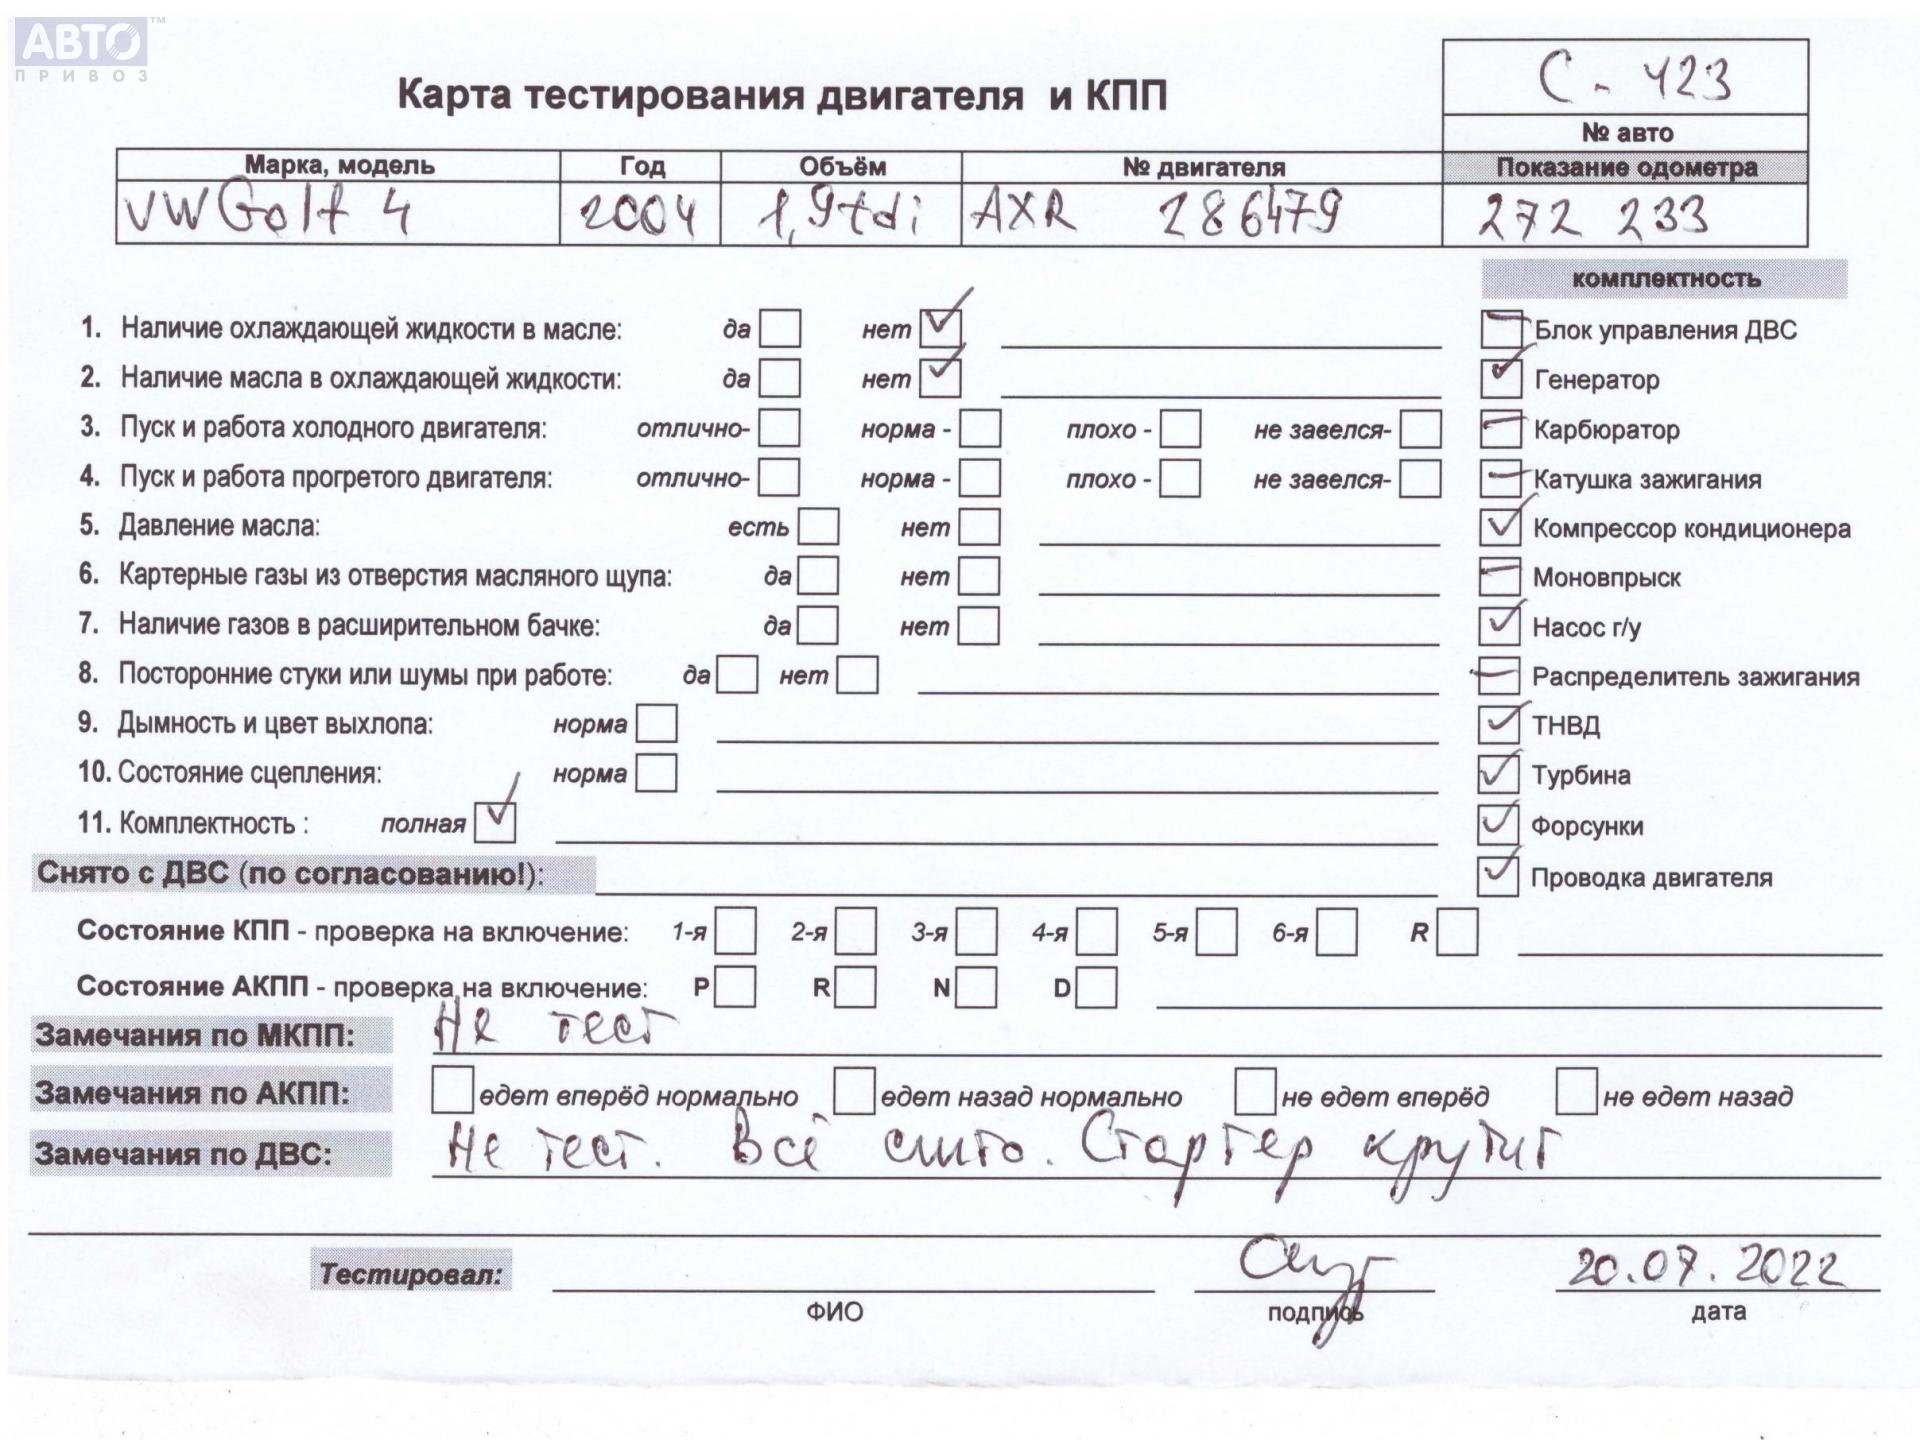 АВТО™
ПРИВОЗ
С - 423
Карта тестирования двигателя и КПП
№ авто
Марка, модель Год Объём № двигателя Показание одометра
VW Golf 4 2004 1,9tdi AXR 286479 272 233
комплектность
1. Наличие охлаждающей жидкости в масле: да нет ✓ Блок управления ДВС
2. Наличие масла в охлаждающей жидкости: да нет ✓ Генератор
3. Пуск и работа холодного двигателя: отлично- норма - плохо - не завелся- Карбюратор
4. Пуск и работа прогретого двигателя: отлично- норма - плохо - не завелся- Катушка зажигания
5. Давление масла: есть нет Компрессор кондиционера
6. Картерные газы из отверстия масляного щупа: да нет Моновпрыск
7. Наличие газов в расширительном бачке: да нет Насос г/у
8. Посторонние стуки или шумы при работе: да нет Распределитель зажигания
9. Дымность и цвет выхлопа: норма ТНВД
10. Состояние сцепления: норма Турбина
11. Комплектность : полная ✓ Форсунки
Снято с ДВС (по согласованию!): Проводка двигателя
Состояние КПП - проверка на включение: 1-я 2-я 3-я 4-я 5-я 6-я R
Состояние АКПП - проверка на включение: P R N D
Замечания по МКПП: Не тест
Замечания по АКПП: едет вперёд нормально едет назад нормально не едет вперёд не едет назад
Замечания по ДВС: Не тест. Всё снято. Стартер крутит
Тестировал: 20.07.2022
ФИО подпись дата